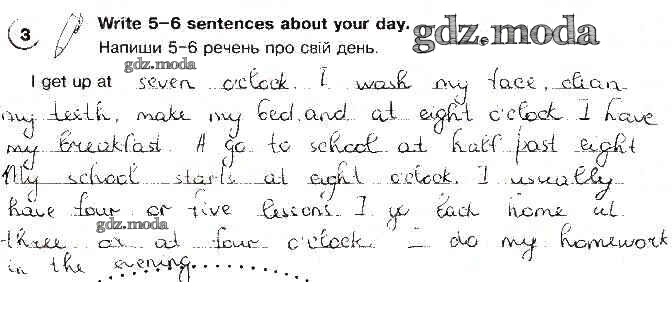 3 Write 5–6 sentences about your day. gdz.moda
Напиши 5–6 речень про свій день.
gdz.moda
I get up at seven o'clock. I wash my face, clean
my teeth, make my bed, and at eight o'clock I have
my breakfast. I go to school at half past eight
My school starts at eight o'clock. I usually
have four or five lessons. I go back home at
gdz.moda
three or at four o'clock. I do my homework
in the evening